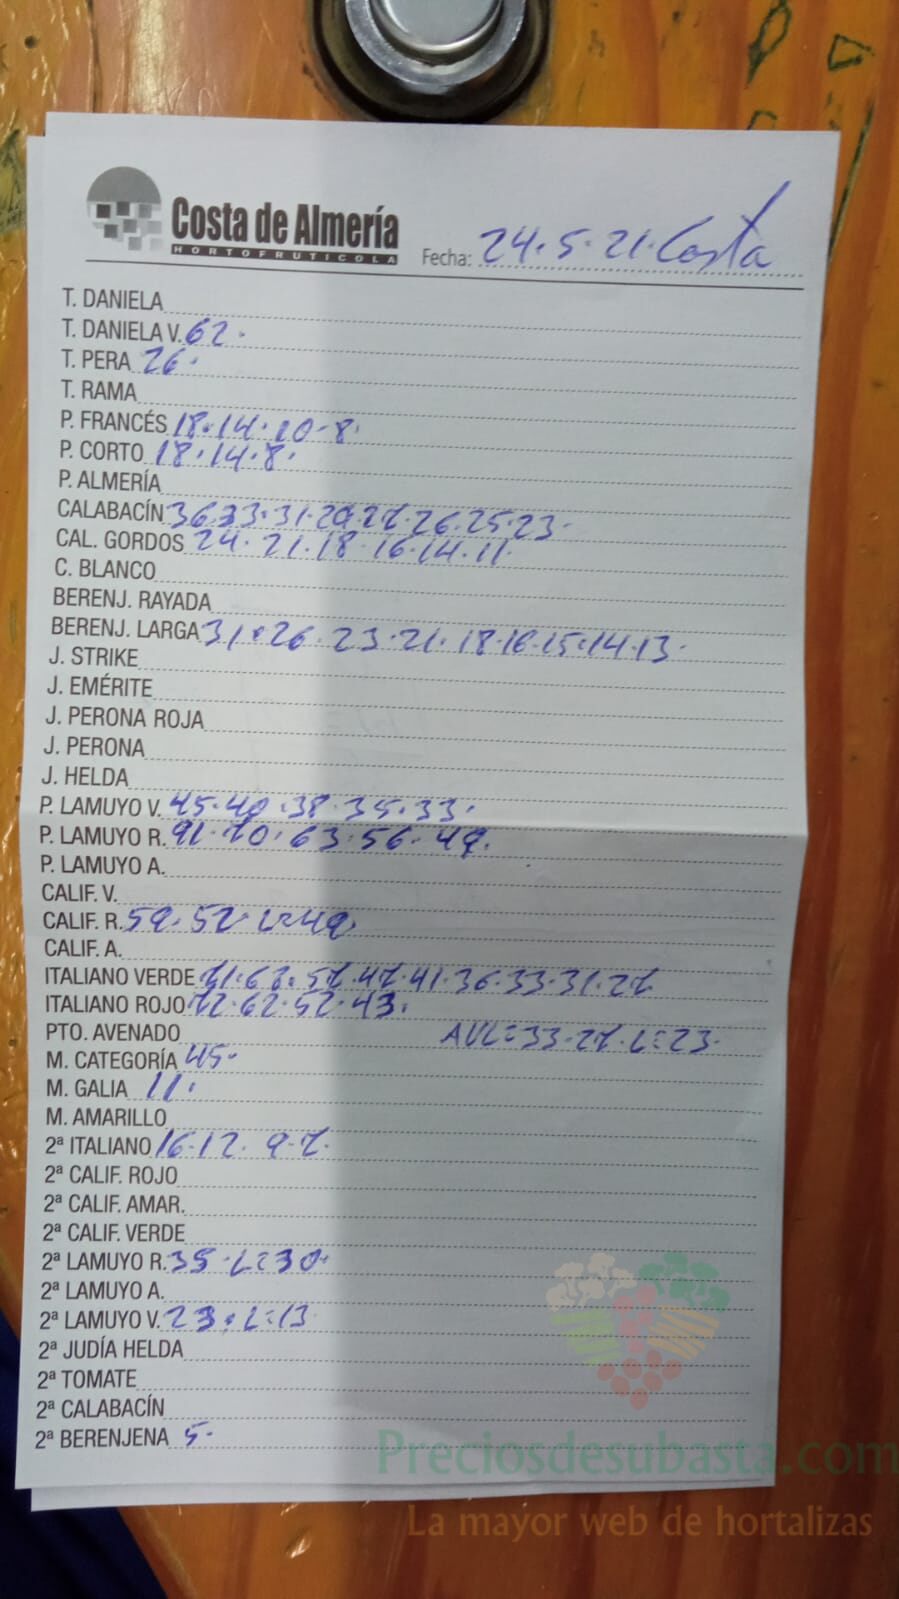 Costa de Almería
HORTOFRUTICOLA
Fecha: 24.5.21. Costa
T. DANIELA
T. DANIELA V. 62.
T. PERA 26.
T. RAMA
P. FRANCÉS 18.14.10-8.
P. CORTO 18.14.8.
P. ALMERÍA
CALABACÍN 36.33.31.29.27.26.25.23.
CAL. GORDOS 24.21.18.16.14.11.
C. BLANCO
BERENJ. RAYADA
BERENJ. LARGA 31.26.23.21.18.16.15.14.13.
J. STRIKE
J. EMÉRITE
J. PERONA ROJA
J. PERONA
J. HELDA
P. LAMUYO V. 45.40.38.35.33.
P. LAMUYO R. 91.70.63.56.49.
P. LAMUYO A.
CALIF. V.
CALIF. R. 59.52.L=49.
CALIF. A.
ITALIANO VERDE 71.62.57.47.41.36.33.31.27
ITALIANO ROJO 72.62.52.43.
PTO. AVENADO AVL=33.27.L=23.
M. CATEGORÍA 45.
M. GALIA 11.
M. AMARILLO
2ª ITALIANO 16.12.9.7.
2ª CALIF. ROJO
2ª CALIF. AMAR.
2ª CALIF. VERDE
2ª LAMUYO R. 35.L=30.
2ª LAMUYO A.
2ª LAMUYO V. 23.L=13.
2ª JUDÍA HELDA
2ª TOMATE
2ª CALABACÍN
2ª BERENJENA 5.
Preciosdesubasta.com
La mayor web de hortalizas